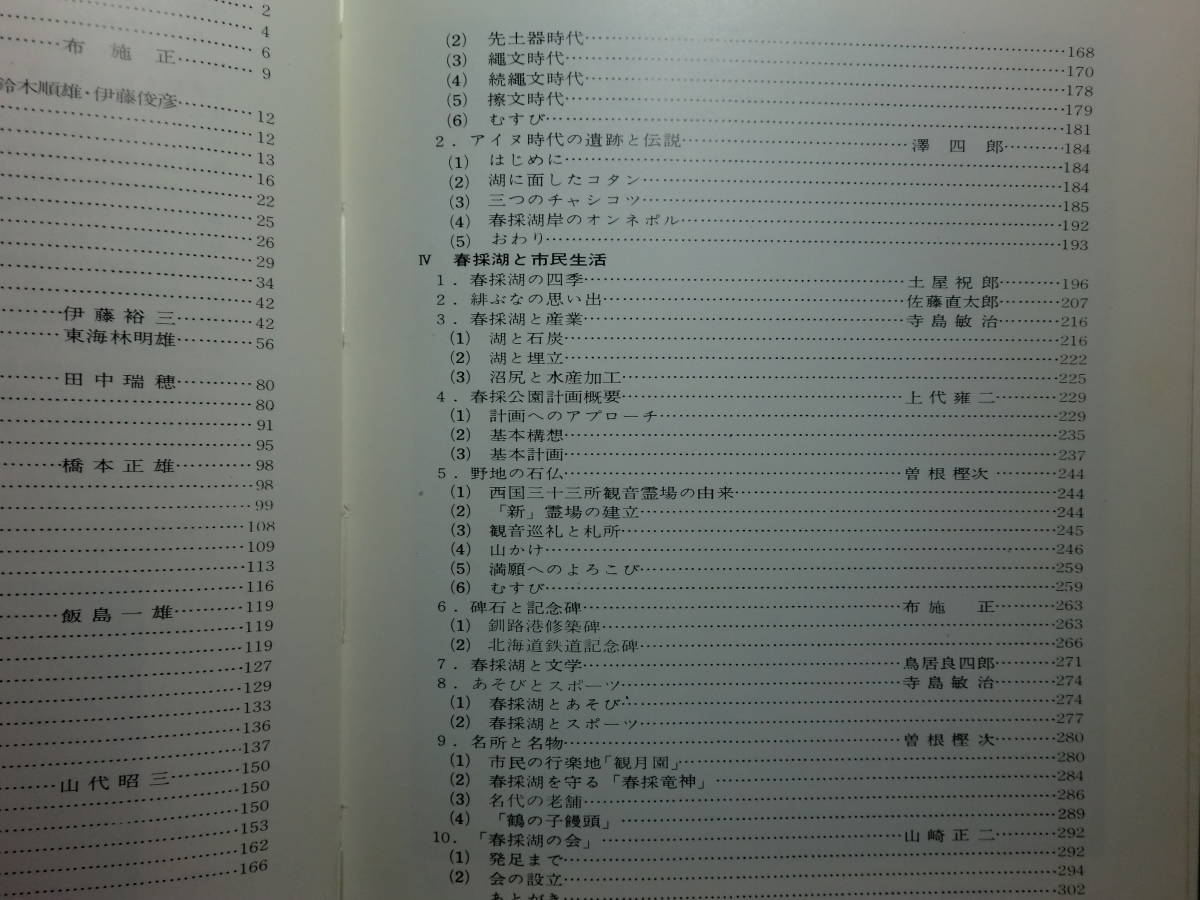 2
4
6
布施正 9
鈴木順雄・伊藤俊彦 12
12
13
16
22
25
26
29
34
42
伊藤裕三 42
東海林明雄 56
田中瑞穂 80
80
91
95
橋本正雄 98
98
99
108
109
113
116
飯島一雄 119
119
119
127
129
133
136
137
山代昭三 150
150
150
153
162
166
(2) 先土器時代 168
(3) 縄文時代 170
(4) 続縄文時代 178
(5) 擦文時代 179
(6) むすび 181
2. アイヌ時代の遺跡と伝説 澤四郎 184
(1) はじめに 184
(2) 湖に面したコタン 184
(3) 三つのチャシコツ 185
(4) 春採湖岸のオンネポル 192
(5) おわり 193
Ⅳ 春採湖と市民生活
1. 春採湖の四季 土屋祝郎 196
2. 緋ぶなの思い出 佐藤直太郎 207
3. 春採湖と産業 寺島敏治 216
(1) 湖と石炭 216
(2) 湖と埋立 222
(3) 沼尻と水産加工 225
4. 春採公園計画概要 上代雍二 229
(1) 計画へのアプローチ 229
(2) 基本構想 235
(3) 基本計画 237
5. 野地の石仏 曽根樫次 244
(1) 西国三十三所観音霊場の由来 244
(2) 「新」霊場の建立 244
(3) 観音巡礼と札所 245
(4) 山かけ 246
(5) 満願へのよろこび 259
(6) むすび 259
6. 碑石と記念碑 布施正 263
(1) 釧路港修築碑 263
(2) 北海道鉄道記念碑 266
7. 春採湖と文学 鳥居良四郎 271
8. あそびとスポーツ 寺島敏治 274
(1) 春採湖とあそび 274
(2) 春採湖とスポーツ 277
9. 名所と名物 曽根樫次 280
(1) 市民の行楽地「観月園」 280
(2) 春採湖を守る「春採竜神」 284
(3) 名代の老舗 286
(4) 「鶴の子饅頭」 289
10. 「春採湖の会」 山崎正二 292
(1) 発足まで 292
(2) 会の設立 294
あとがき 302